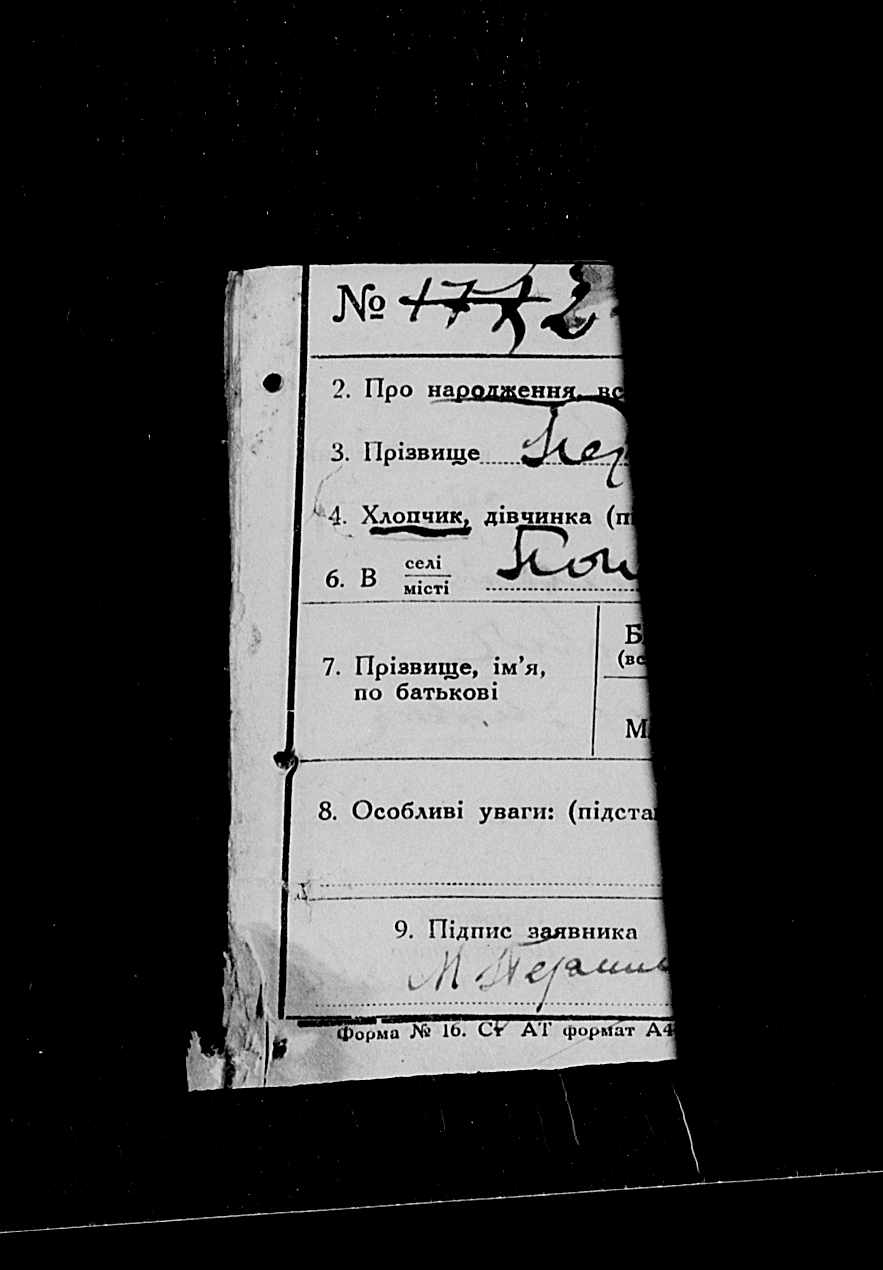 № 177 2
2. Про народження, вс
3. Прізвище Пер
4. Хлопчик, дівчинка (пі
6. В селі Кон
місті
Б
(вс
7. Прізвище, ім'я,
по батькові
М
8. Особливі уваги: (підста
9. Підпис заявника
М
Форма № 16. Ст АТ формат А4